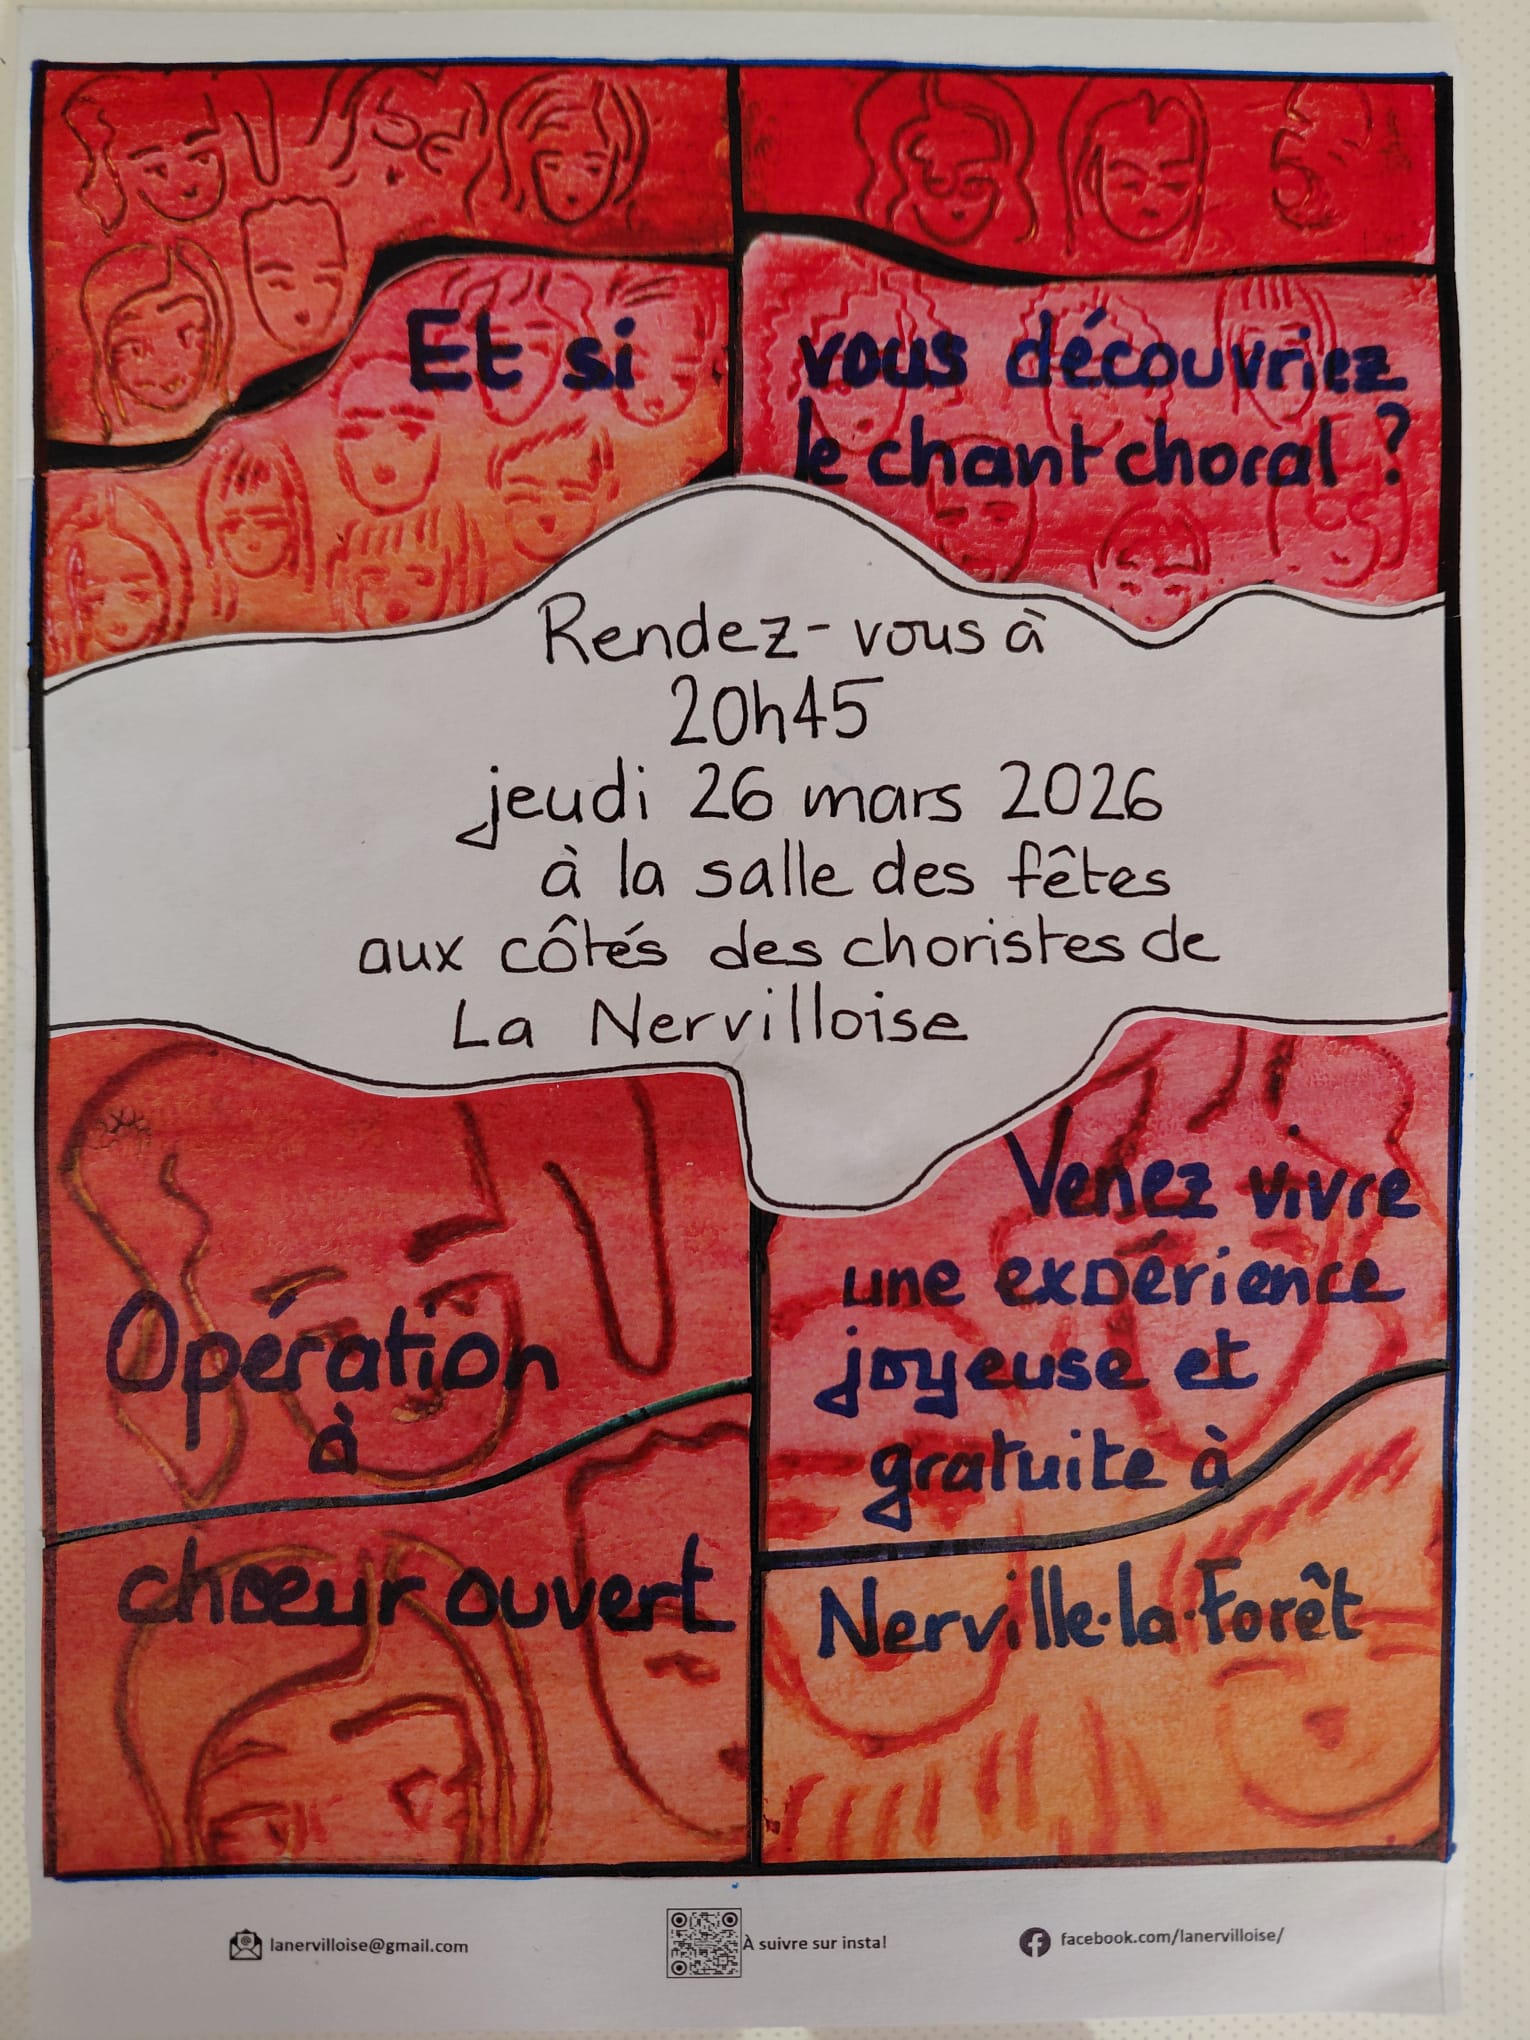 Et si
vous découvriez
le chant choral ?
Rendez-vous à
20h45
jeudi 26 mars 2026
à la salle des fêtes
aux côtés des choristes de
La Nervilloise
Opération
à
chœur ouvert
Venez vivre
une expérience
joyeuse et
gratuite à
Nerville-la-Forêt
lanervilloise@gmail.com
À suivre sur insta!
facebook.com/lanervilloise/